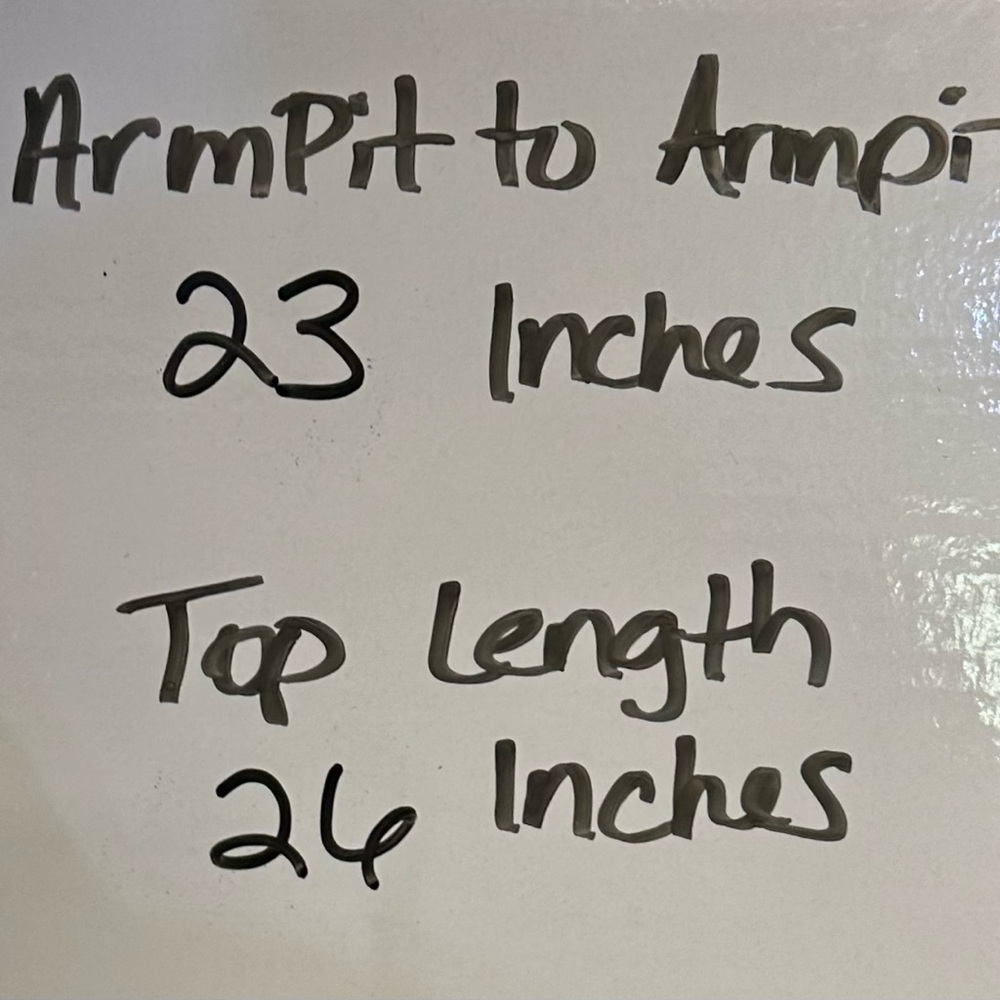 ArmPit to Armpi
23 Inches
Top Length
26 Inches